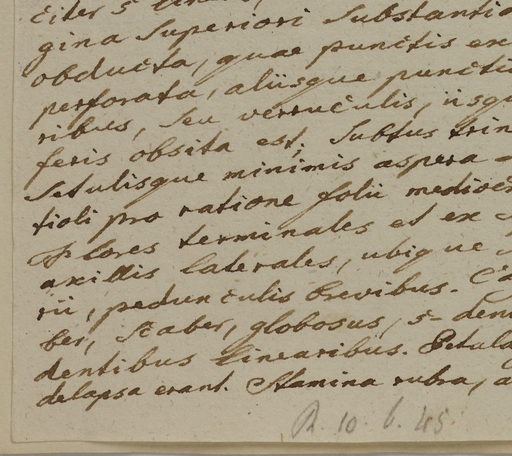 citer 5 linea
gina superiori substantia
obducta, quae punctis ex
perforata, aliisque puncti
ribus, seu verruculis, iisqu
feris obsita est; subtus trin
setulisque minimis aspera
tioli pro ratione folii mediocr
Flores terminales et ex
axillis laterales, ubique
rii, pedunculis brevibus. Ca
ber, scaber, globosus, 5-den
dentibus linearibus. Petala
delapsa erant. Stamina rubra, a
R. 10. 6. 45.